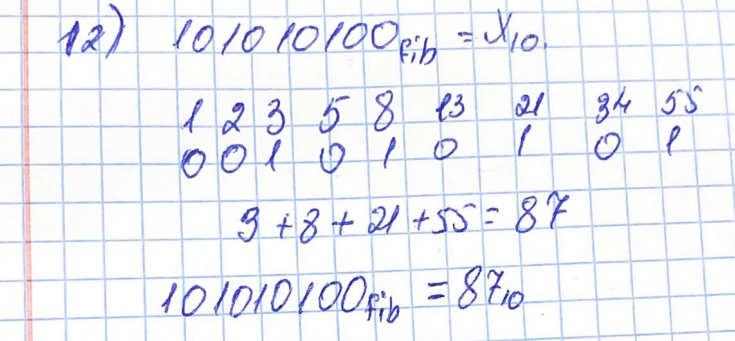 12) 101010100fib = X10.
1 2 3 5 8 13 21 34 55
0 0 1 0 1 0 1 0 1
3 + 8 + 21 + 55 = 87
101010100fib = 8710